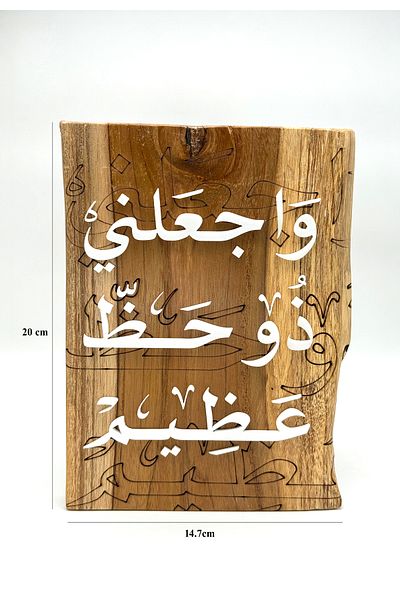 وَاجعَلني
ذُو حَظٍّ
عَظِيمْ
20 cm
14.7cm